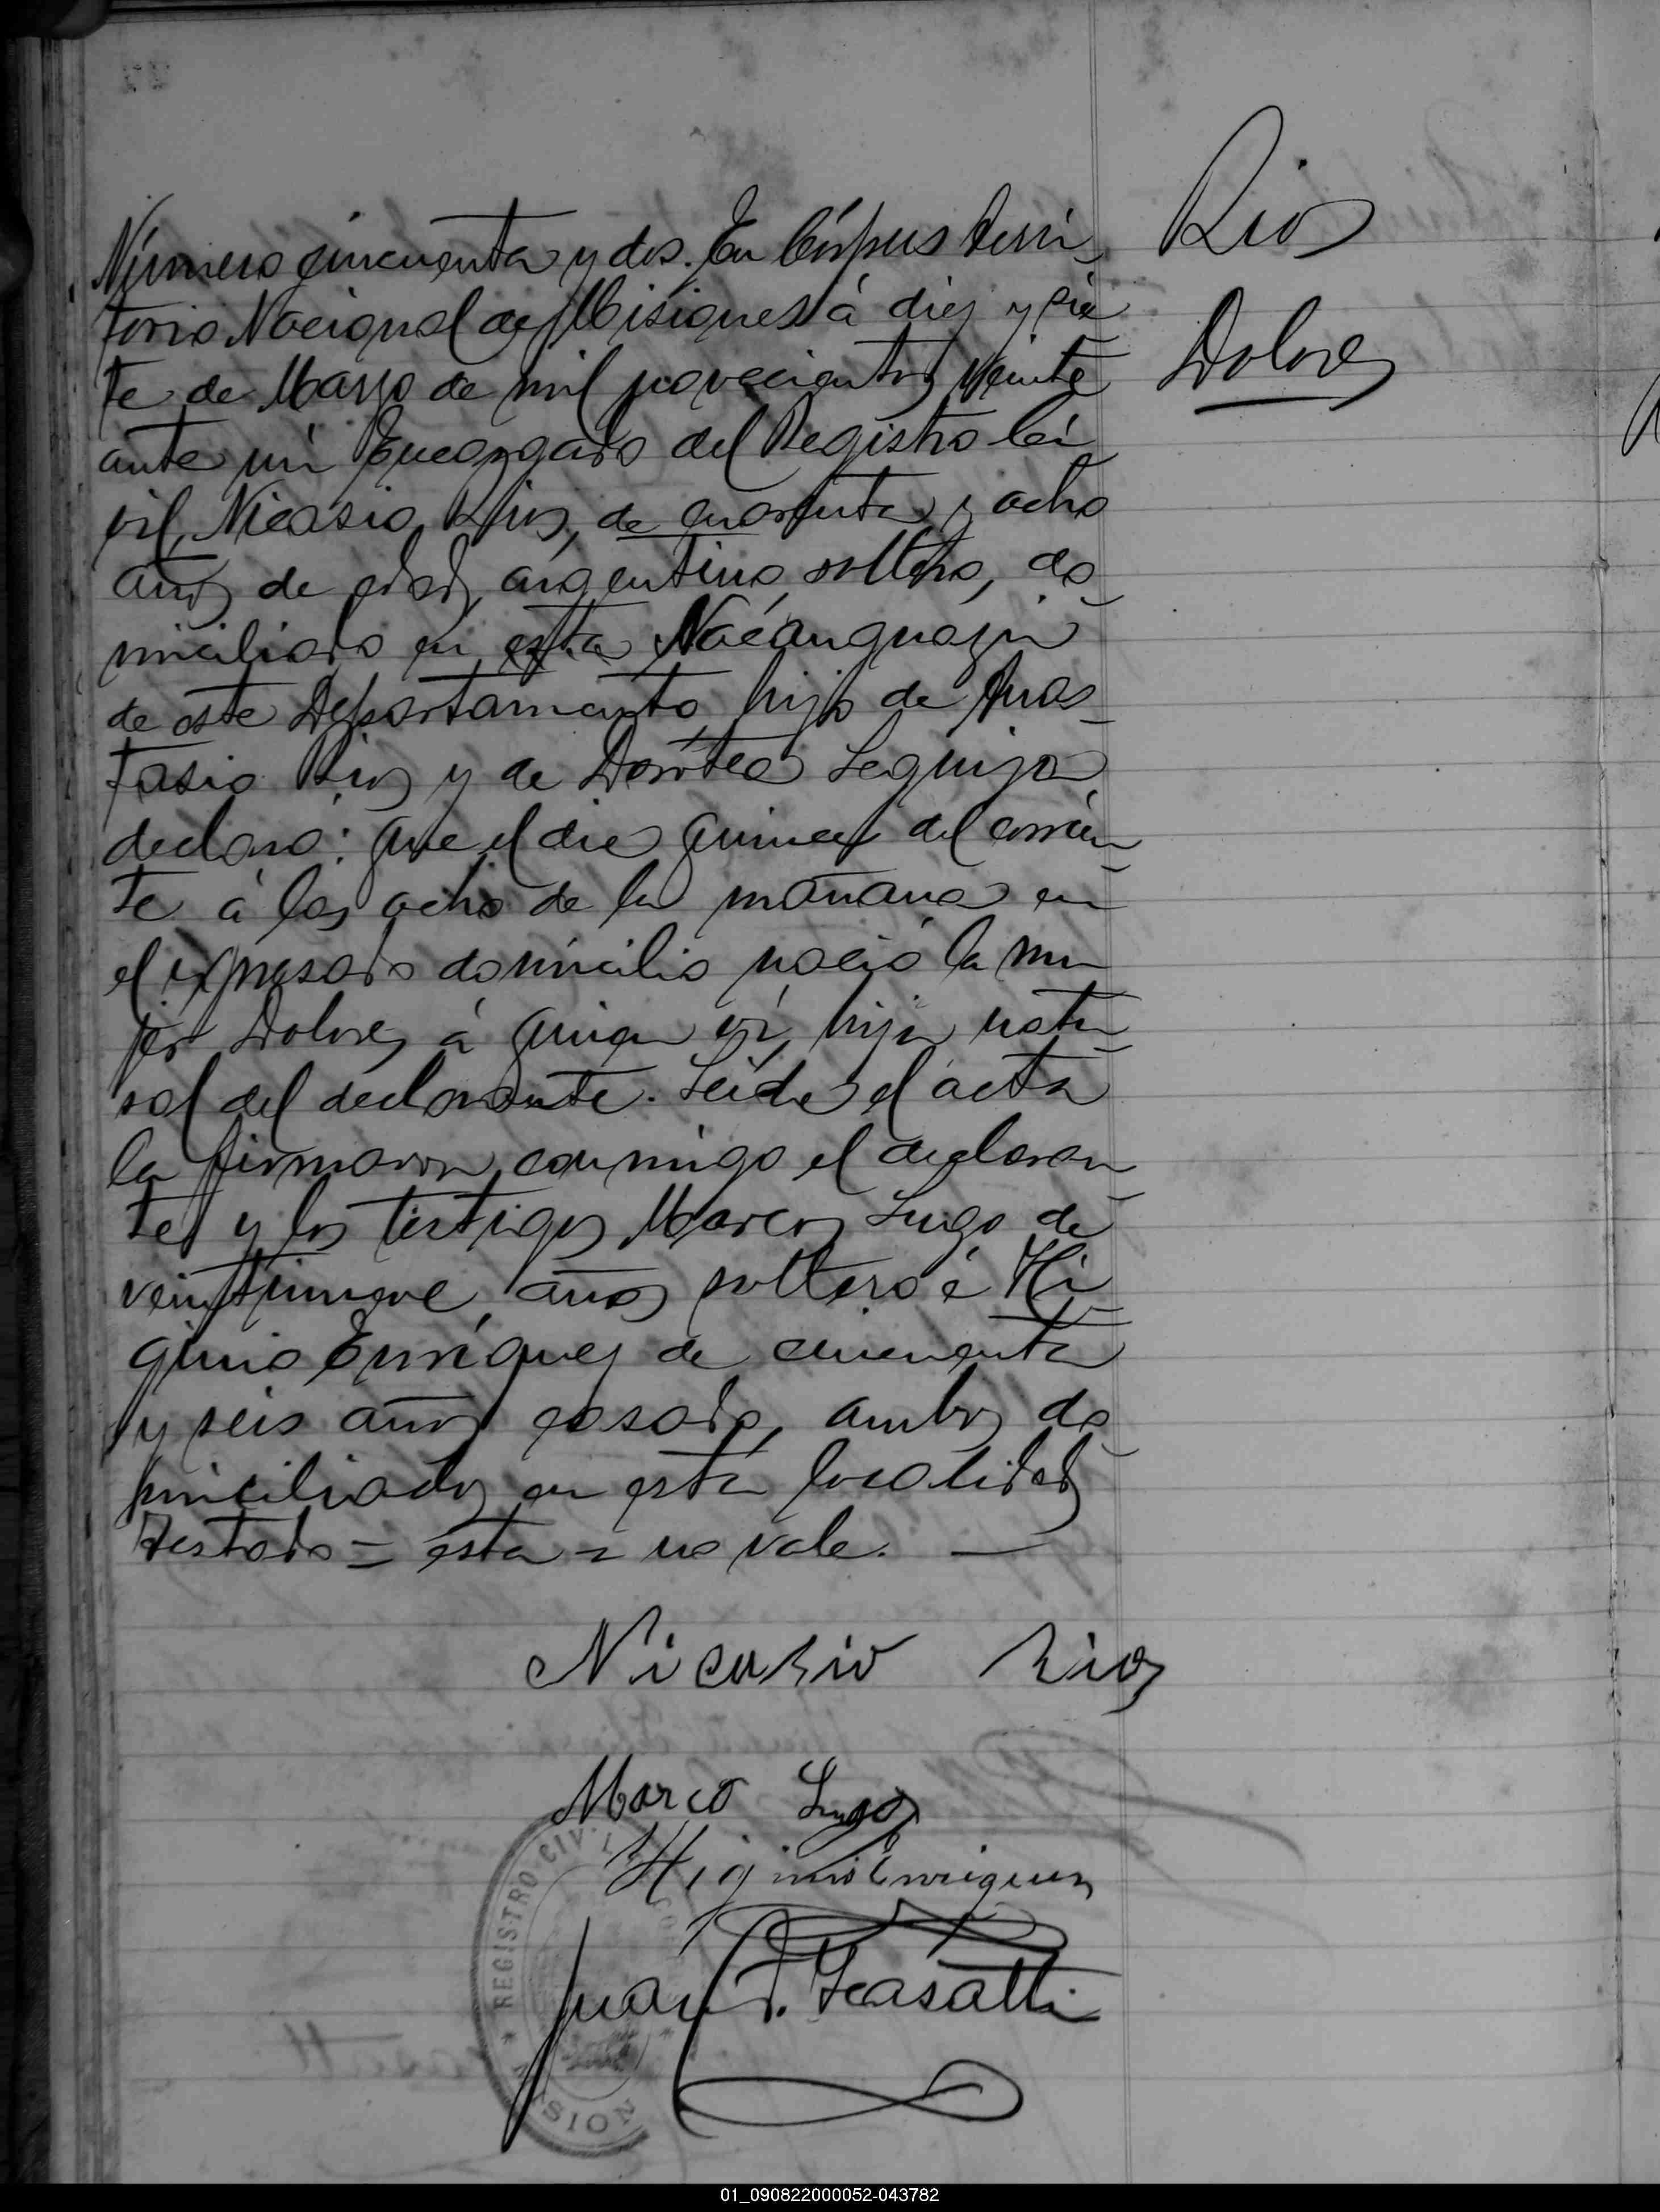 Número cincuenta y dos. En Córpus terri-
torio Nacional de Misiones á diez y sie
te de Marzo de mil novecientos veinte
ante mí Encargado del Registro Ci-
vil, Nicasio Rios, de cuarenta y ocho
años de edad, argentino, soltero, do-
miciliado en esta Ñacanguazú
de este Departamento, hijo de Anas-
tasio Rios y de Dorótea Leguiza
declaró: Que el dia quince del corrien-
te á las ocho de la mañana en
el expresado domicilio nació la mu-
jer Dolores á quien ví, hija natu-
ral del declarante. Leida el acta
la firmaron conmigo el declaran-
te y los testigos Marcos Lugo de
veintinueve años soltero é Hi-
ginio Enriquez de cincuenta
y seis años casado, ambos do-
miciliados en esta localidad
Testado = esta = no vale. —
Rios
Dolores
Nicasio Rios
Marco Lugo
Higinio Enriquez
Juan Scasatti
REGISTRO CIVIL
MISION
01_090822000052-043782